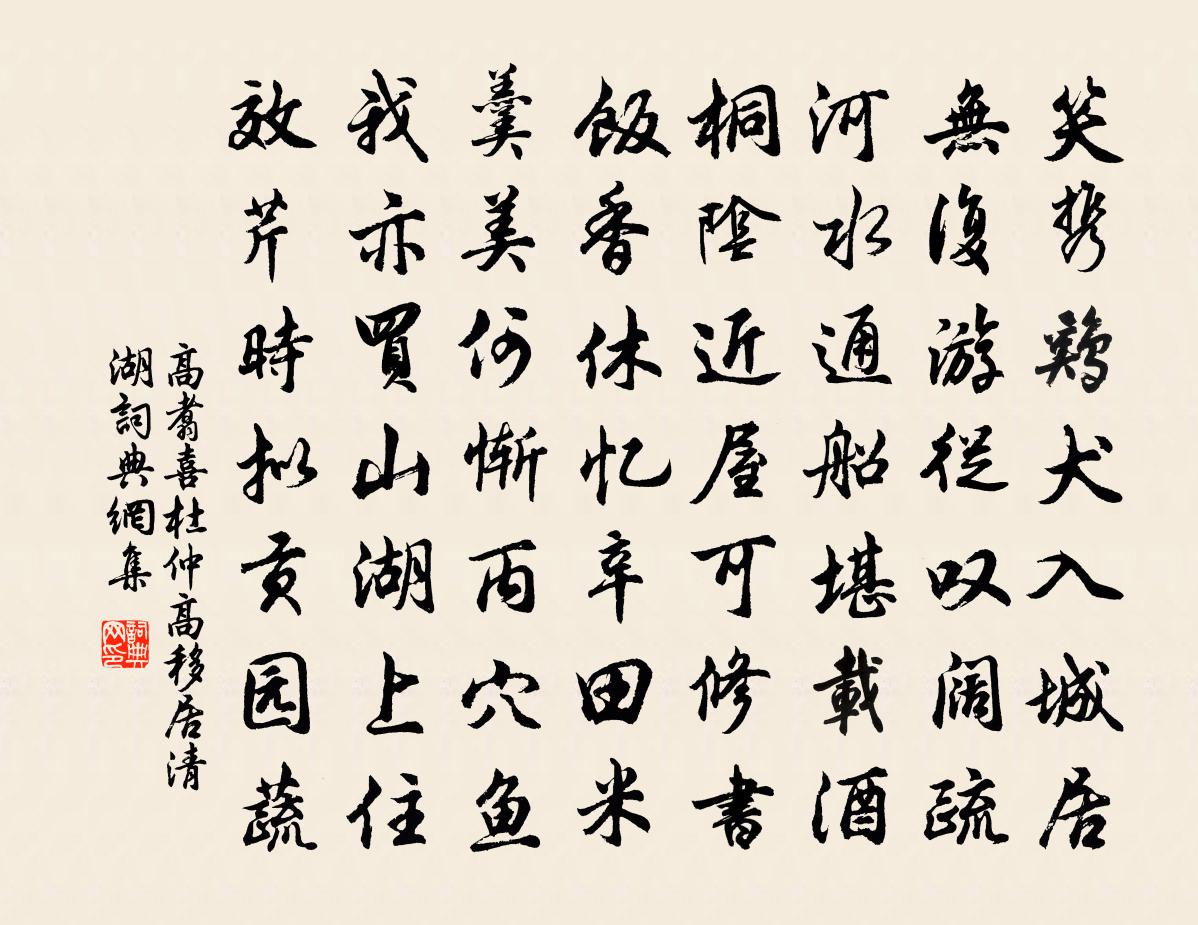 笑携鷄犬入城居
無復游從叹阔疏
河水通船堪載酒
桐陰近屋可修書
飯香休忆辛田米
羹美何慚丙穴鱼
我亦買山湖上住
效芹時拟贡园蔬
高翥喜杜仲高移居清
湖詞典網集
詞典网印